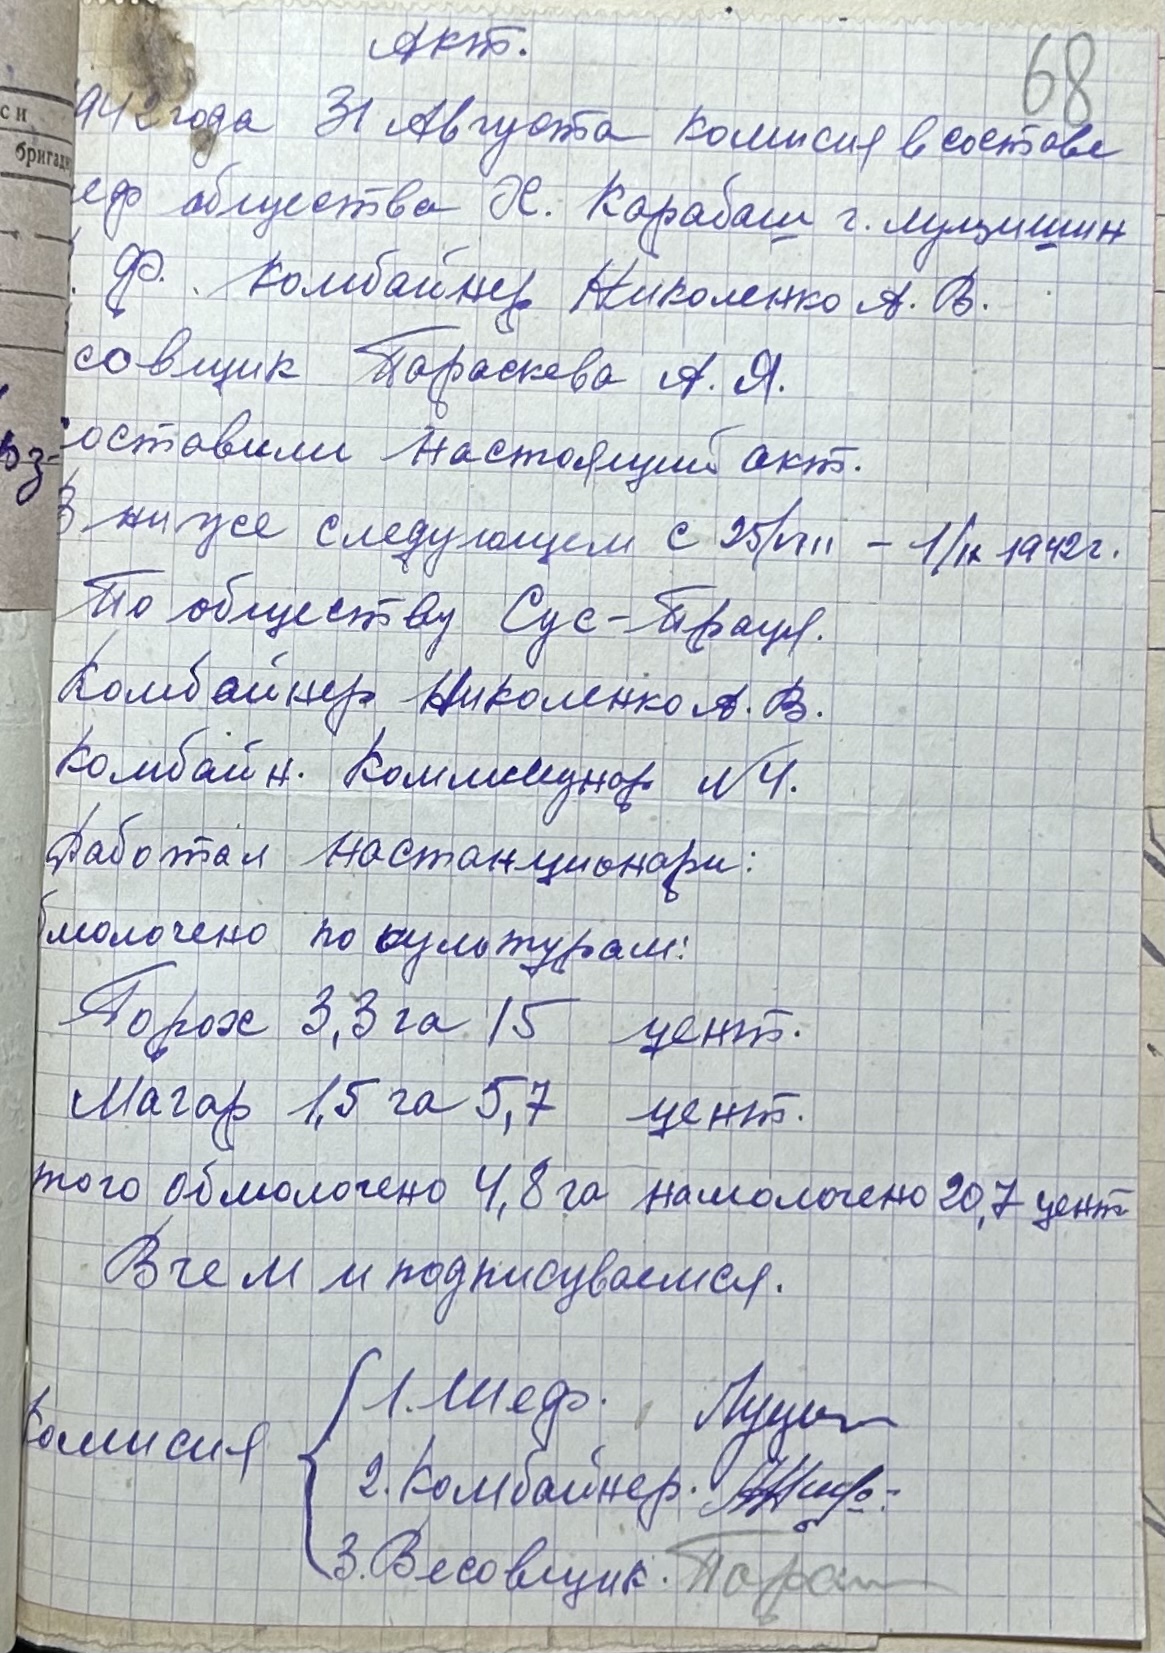 68
Акт.
942 года 31 Августа комисия в составе
еф общества Х. Карабаш г. Лущишин
Ф. Комбайнер Николенко А. В.
совщик Параскева А. Я.
оставили настоящий акт.
В ниже следующем с 25/VIII – 1/IX 1942 г.
По обществу Сус-Праця.
Комбайнер Николенко А. В.
Комбайн. Коммунар №4.
Работал настанционари:
бмолочено по культурам:
Горох 3,3 га 15 цент.
Магар 1,5 га 5,7 цент.
того обмолочено 4,8 га намолочено 20,7 цент
В чем и подписуваемся.
Комисия
1. Шеф.
2. Комбайнер.
3. Весовщик. Парас
си
бригад